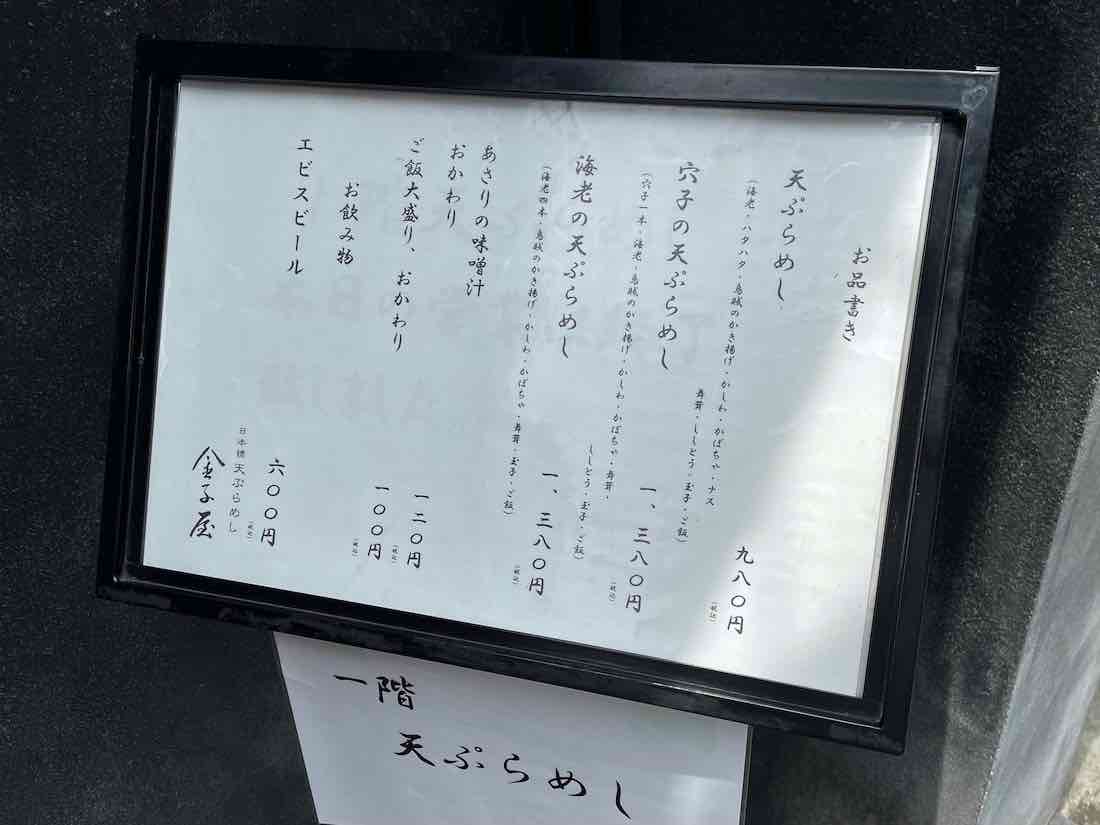 お品書き
天ぷらめし
九八〇円
(税込)
(海老・ハタハタ・烏賊のかき揚げ・かしわ・かぼちゃ・ナス
舞茸・ししとう・玉子・ご飯)
穴子の天ぷらめし
一、三八〇円
(税込)
(穴子一本・海老・烏賊のかき揚げ・かしわ・かぼちゃ・舞茸・
ししとう・玉子・ご飯)
海老の天ぷらめし
一、三八〇円
(税込)
(海老四本・烏賊のかき揚げ・かしわ・かぼちゃ・舞茸・玉子・ご飯)
あさりの味噌汁
おかわり
一二〇円
(税込)
ご飯大盛り、おかわり
一〇〇円
(税込)
お飲み物
エビスビール
六〇〇円
(税込)
日本橋 天ぷらめし
金子屋
一階
天ぷらめし